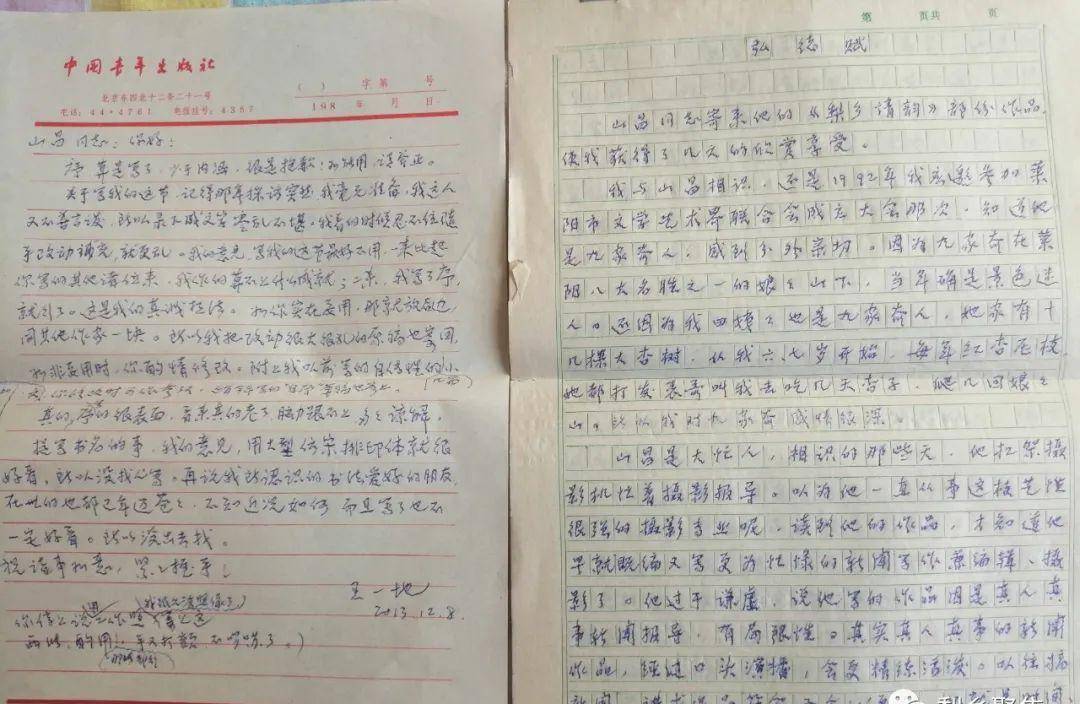 中国青年出版社
北京东四北十二条二十一号
电话：44·4761 电报挂号：4357
( ) 字第 号
198 年 月 日
山昌同志：你好！
序算是写了，少于内涵，很是抱歉！如能用，请斧正。
关于写我的这节，记得那年探访突然，我毫无准备，我这人
又不善言谈，所以录下成文皆零乱不堪，我看的时候忍不住随
手改动补充，就更乱。我的意见，写我的这节最好不用，一来比起
你写的其他诸位来，我作的算不上什么成就；二来，我写了序，
就别了。这是我的真诚想法。如你实在要用，那就放后边
同其他作家一块。所以我把改动很大很乱的原稿也寄回，
如非要用时，你酌情修改。附上我以前写的自传性的小
真的，序的很表面，音来真的老了，脑力跟不上，多多谅解。
提写书名的事，我的意见，用大型仿宋排印体就很
好看，所以没找人写。再说我所认识的书法爱好的朋友，
在世的也都已年过苍老，不知近况如何，而且写了也不
一定好看。所以没出去找。
祝诸事如意，紧紧握手！
王一地
2013.12.8
第 页共 页
弘德赋
山昌同志寄来他的《梨乡情韵》部份作品，
使我获得了几天的欣赏享受。
我与山昌相识，还是1992年我应邀参加莱
阳市文学艺术界联合会成立大会那次，知道他
是九家夼人，感到分外亲切。因为九家夼在莱
阳八大名胜之一的娘娘山下，当年确是景色迷
人。还因为我四姨姨也是九家夼人，她家有十
几棵大杏树，从我六、七岁开始，每年红杏压枝，
她都打发表哥叫我去吃几天杏子，爬几回娘娘
山。所以我对九家夼感情很深。
山昌是大忙人，相识的那些天，他扛架摄
影机忙着摄影报导。以为他一直从事这技艺性
很强的摄影专业呢，读到他的作品，才知道他
早就既编又写更为忙碌的新闻写作兼编辑、摄
影了。他过于谦虚，说他写的作品因是真人真
事新闻报导，有局限性。其实真人真事的新闻
作品，经过口头演播，会更精练活泼。以往搞